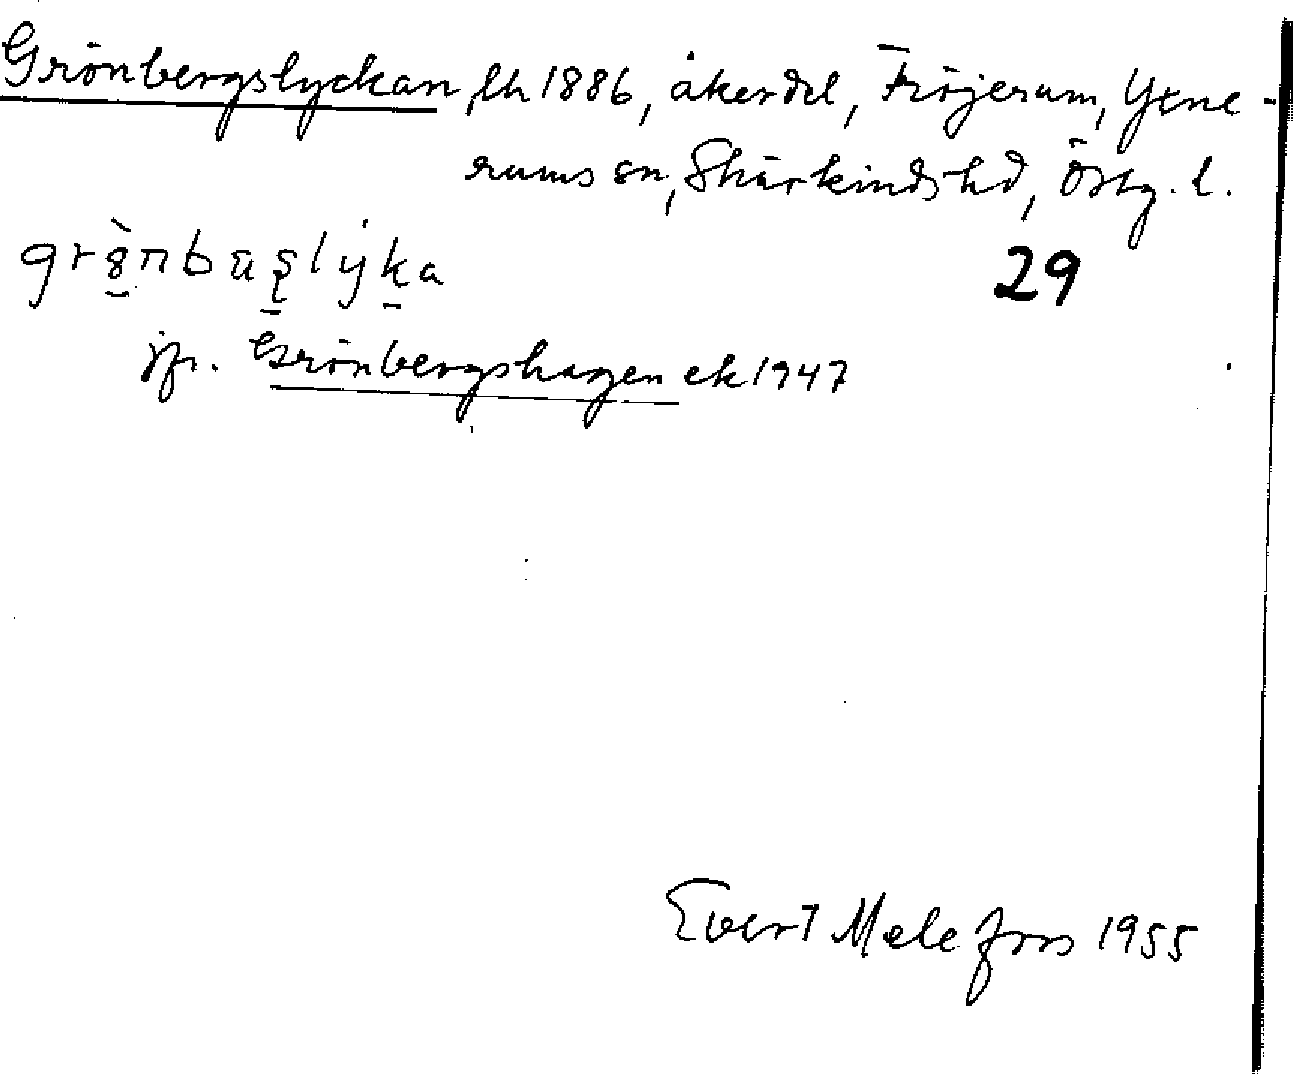 Grönbergslyckan, lh 1886, åkerdel, Fröjerum, Gene-
rums sn, Skärkinds hd, Östg. l.
29
jfr. Grönbergshagen ek 1947
Evert Melefors 1955